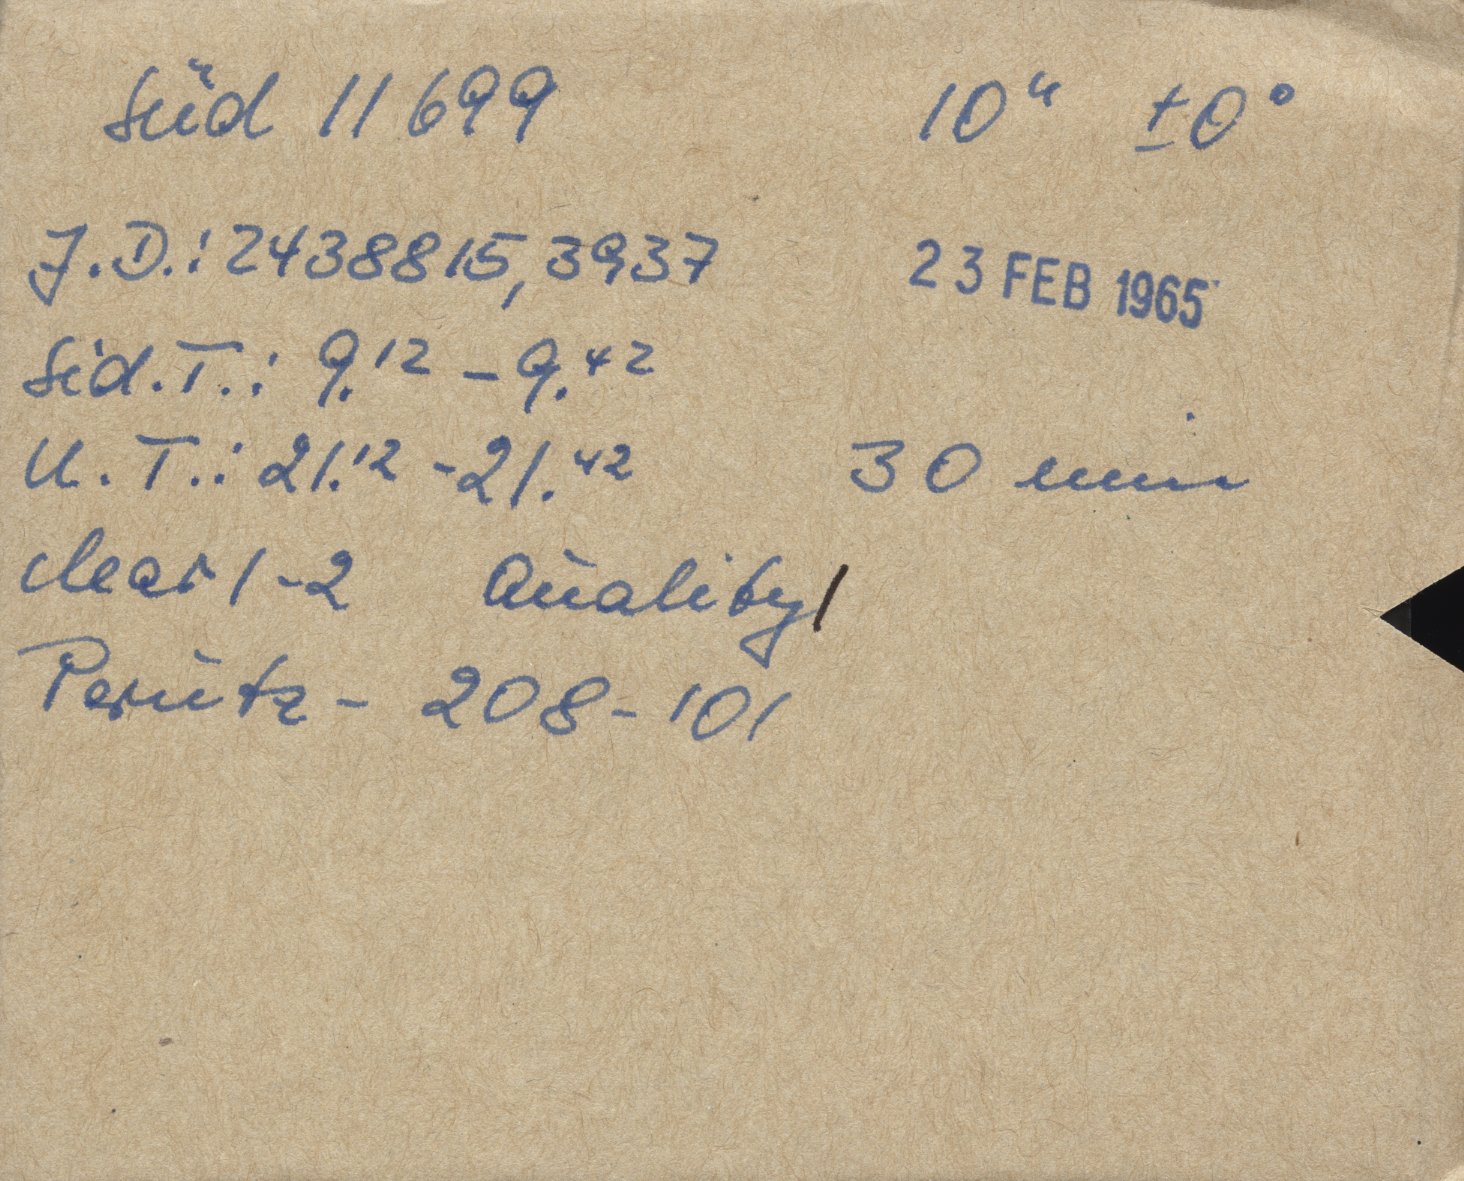 Süd 11699 10ʰ ±0°
J.D.: 2438815,3937 23 FEB 1965
Sid.T.: 9.¹² - 9.⁴²
U.T.: 21.¹² - 21.⁴² 30 min
clear 1-2 Quality 1
Perutz - 208 - 101